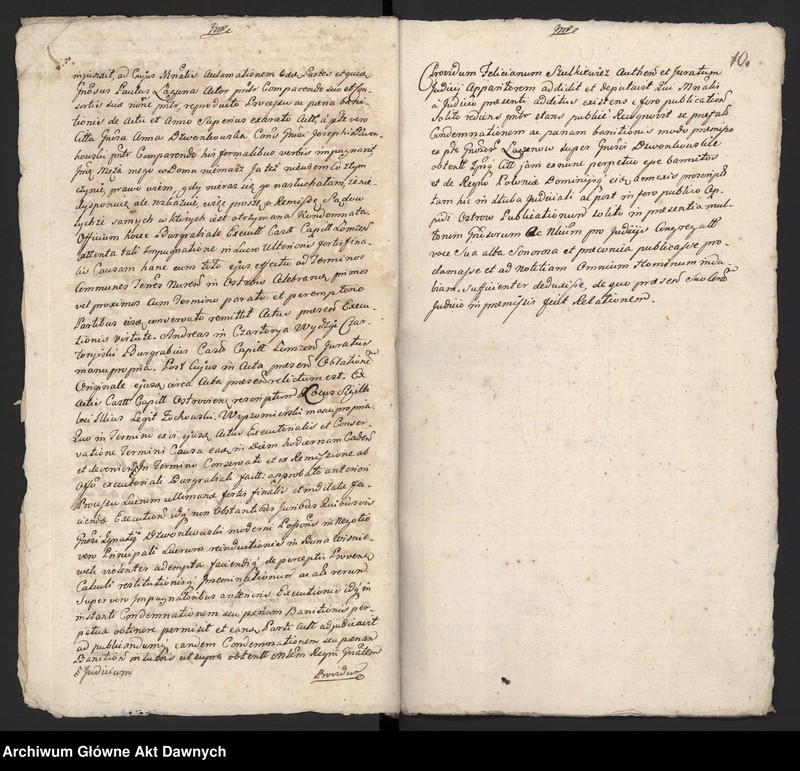 injunxit, ad Cujus Mnalis Aclamationem Eadem Partes et quidem
Gnosus Paulus Lazuna Actor pntr Comparendo suo et Con-
sortis suae noie pntr. reproducto Processu ac paena bani-
tionis de Actu et Anno Superius exarato Actt. a pte vero
Citta Gnosa Anna Dzwonkowska Cons. Gnosi Josephi Dzwon-
kowski pntr Comparendo his formalibus verbis impugnavit
Męża mego w Domu niemasz Ja też nieużem co złym
czynię, prawo wiem, gdy nieraz się go nasłuchałam, że nie
dysponuię ale uważać, więc proszę o Remissę Sądow
tychże samych w których iest otrzymana Kondemnata.
Officium hocce Burgrabiale Executt Castr Capitt Łomzen
attenta tali Impugnatione in Lucro Ultionis fortis fina-
lis Causam hanc cum toto ejus effectu ad Terminos
Communes Terres Nuren in Ostrow Celebran primos
vel proximos Cum Termino parato et peremptorio
Partibus conservato remittit Actus praesen Execu-
tionis virtute. Andreas in Czartorya Wydżga Czar-
toryiski Burgrabius Castr Capitt Łomzen Juratus
manu propria. Post Cujus in Acta praesen Oblatione
Originale ejusdem circa Acta praesen relictum est. Ex
Actis Castr Capitt Ostrovien rescriptum Locus Sigilli
loci Illius Legit Zochowski. Wyszomierski manu propria
Quo in Termino ex vi ejusdem Actus Executorialis et Conser-
vatione Termini Causa eadem in Diem hodiernam Caden
et devenien In Termino Conservato et ex Remissione ab
Offo executoriali Burgrabiali fact. approbato anteriori
Processu Lucrum ultimariae fortis finalis et inditale fa-
ciendae Execution idq non Obstantibus Juribus Quibusvis
Gnosi Ignatij Dzwonkowski moderni Posson in Negotio
vero Principali Lucrum reinductionis in Bona Wisnie-
wek violenter adempta faciendi q de perceptis Proven
Calculi restitutionisq Inseminationum ac ali rerum
Super vero impugnationibus anterioris Executionis idq in
instanti Condemnationem seu paenam Banitionis per-
petuae obtinere permisit et eandem Parti Actt adjudicavit
ad publicandumq eandem Condemnationem seu paenam
Banition in lucris ut supra obtentt Mnlem Regni Gnalem
Judicium
Providum
10.
Providum Felicianum Szulkiewicz Authen et Juratum
Judicij Apparitorem addidit et deputavit Qui Mnalis
a Judicio praesenti additus existens e foro publication
Solito rediens pntr stans publice Recognovit se praefatam
Condemnationem ac paenam banitionis modo praemisso
ex pte Gnosor Lazunow super Gnosis Dzwonkowskie
obtentt Ipsosq Citt jam ex nunc perpetuo esse bannitos
et de Regno Poloniae Dominijsq eidem annexis proscriptos
tam hic in Stuba Judiciali ac post in foro publico Op-
pidi Ostrow Publicationum solito in praesentia mul-
torum Gnosorum ac Alium pro Judicijs Congregatt
voce sua alta Sonorosa et praeconia publicasse pro-
clamasse et ad Notitiam Omnium Hominum inda-
biam. Sufficienter deduxisse, de quo praesen suo Coram
Judicio in praemissis fecit Relationem.
Archiwum Główne Akt Dawnych